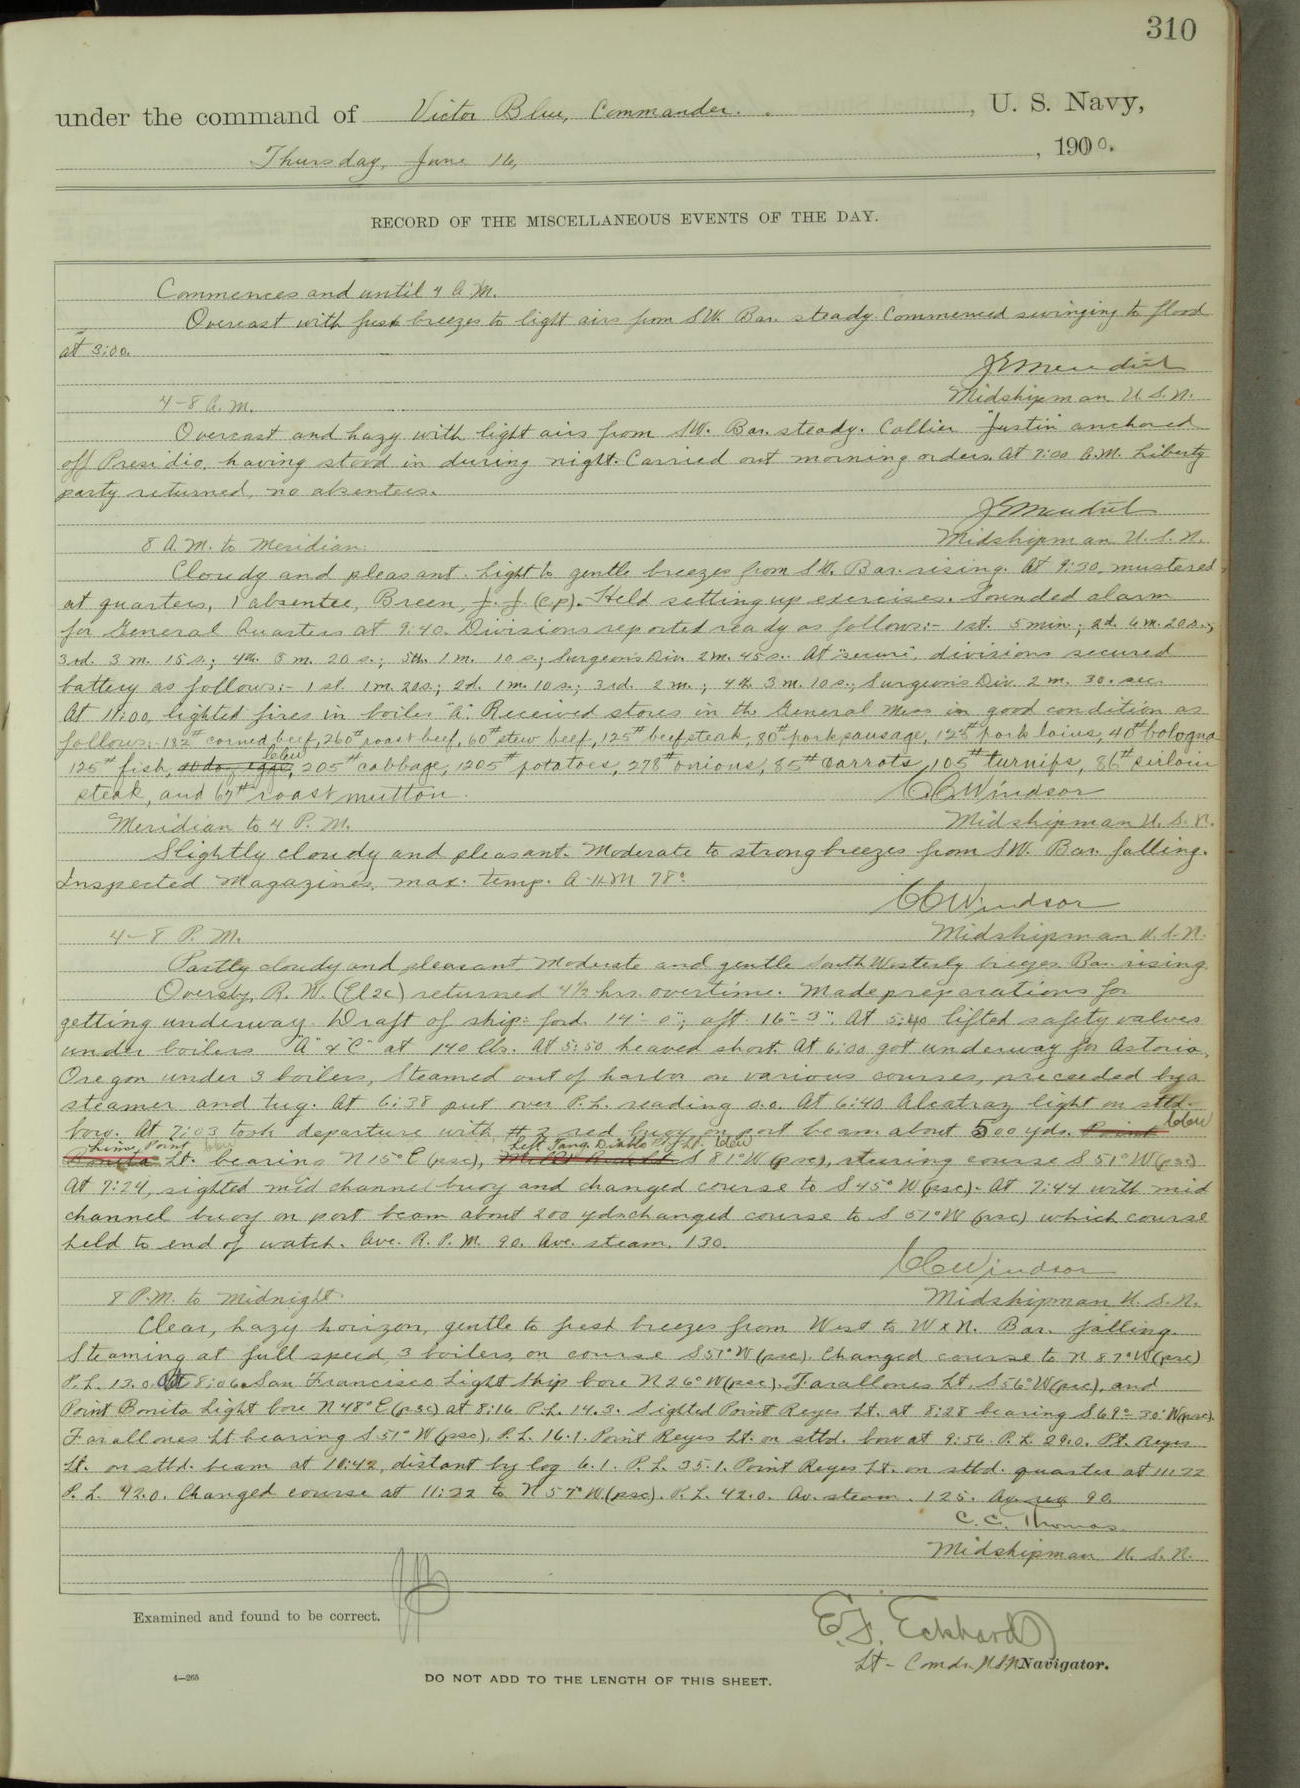 310
under the command of Victor Blue, Commander. , U. S. Navy,
Thursday, June 16, , 1900.
RECORD OF THE MISCELLANEOUS EVENTS OF THE DAY.
Commences and until 4 A.M.
Overcast with fresh breezes to light airs from SW. Bar. steady. Commenced swinging to flood
at 3:00.
Midshipman U. S. N.
4-8 A.M.
Overcast and hazy with light airs from SW. Bar. steady. Collier "Justin" anchored
off Presidio, having stood in during night. Carried out morning orders. At 7:00 A.M. Liberty
party returned, no absentees.
Midshipman U. S. N.
8 A.M. to Meridian.
Cloudy and pleasant. Light to gentle breezes from SW. Bar. rising. At 9:30, mustered
at quarters, 1 absentee, Breen, J. J (cp). Held setting up exercises. Sounded alarm
for General Quarters at 9:40. Divisions reported ready as follows:- 1st. 5 min.; 2d. 4 m. 20 s.;
3rd. 3 m. 15 s.; 4th. 3 m. 20 s.; 5th. 1 m. 10 s.; Surgeon's Div. 2 m. 45 s. At "secure", divisions secured
battery as follows:- 1 st. 1m. 20s.; 2d. 1m. 10s.; 3rd. 2 m.; 4th. 3 m. 10 s.; Surgeon's Div. 2 m. 30. sec.
At 11:00, lighted fires in boiler "A". Received stores in the General Mess in good condition as
follows:- 132# corned beef, 260# roast beef, 60# stew beef, 125# beefsteak, 80# pork sausage, 125# pork loins, 40# bologna
125# fish, 205# cabbage, 1205# potatoes, 278# onions, 85# carrots, 105# turnips, 86# sirloin
steak, and 67# roast mutton.
CCWindsor
Meridian to 4 P.M.
Midshipman U. S. N.
Slightly cloudy and pleasant. Moderate to strong breezes from SW. Bar. falling.
Inspected Magazines, max. temp. A-11-M 78°
CCWindsor
4-8 P.M.
Midshipman U. S. N.
Partly cloudy and pleasant. Moderate and gentle South Westerly breezes. Bar. rising
Oversby, R. W. (El 2c) returned 4½ hrs. overtime. Made preparations for
getting underway. Draft of ship: ford. 14'-0"; aft. 16'-3". At 5:40 lifted safety valves
under boilers "A" & "C" at 140 lbs. At 5:50 heaved short. At 6:00 got underway for Astoria,
Oregon under 3 boilers, steamed out of harbor on various courses, preceeded by a
steamer and tug. At 6:38 put over P.L. reading 0.0. At 6:40 Alcatraz light on stbd.
bow. At 7:03 took departure with # 2 red buoy on port beam about 500 yds. Point
Lime Point left Tang. Diablo
Bonita Lt. bearing N 15° E (psc), S 81° W (psc), steering course S 51° W (psc)
At 7:24, sighted mid channel buoy and changed course to S 45° W (psc). At 7:44 with mid
channel buoy on port beam about 200 yds changed course to S 51° W (psc) which course
held to end of watch. Ave. R.P.M. 90. Ave. steam. 130.
CCWindsor
8 P.M. to Midnight.
Midshipman U. S. N.
Clear, hazy horizon, gentle to fresh breezes from West to W x N. Bar. falling.
Steaming at full speed, 3 boilers, on course S 51° W (psc). Changed course to N 87° W (psc)
P.L. 13.0 At 8:06. San Francisco Light Ship bore N 26° W (psc). Farallones Lt. S 56° W (psc), and
Point Bonita Light bore N 48° E (psc) at 8:16 P.L. 14.3. Sighted Point Reyes Lt. at 8:28 bearing S 69°-30' W (psc).
Farallones Lt bearing S 51° W (psc). P.L. 16.1. Point Reyes Lt. on stbd. bow at 9:56. P.L. 29.0. Pt. Reyes
Lt. on stbd. beam at 10:42, distant by log 6.1. P.L. 35.1. Point Reyes Lt. on stbd. quarter at 11:32
P.L. 42.0. Changed course at 11:32 to N 57° W (psc). P.L. 42.0. Av. steam. 125. Av. rev 90.
C. C. Thomas
Midshipman U. S. N.
Examined and found to be correct.
E. F. Eckhardt
Lt-Comdr. USN Navigator.
4—265
DO NOT ADD TO THE LENGTH OF THIS SHEET.